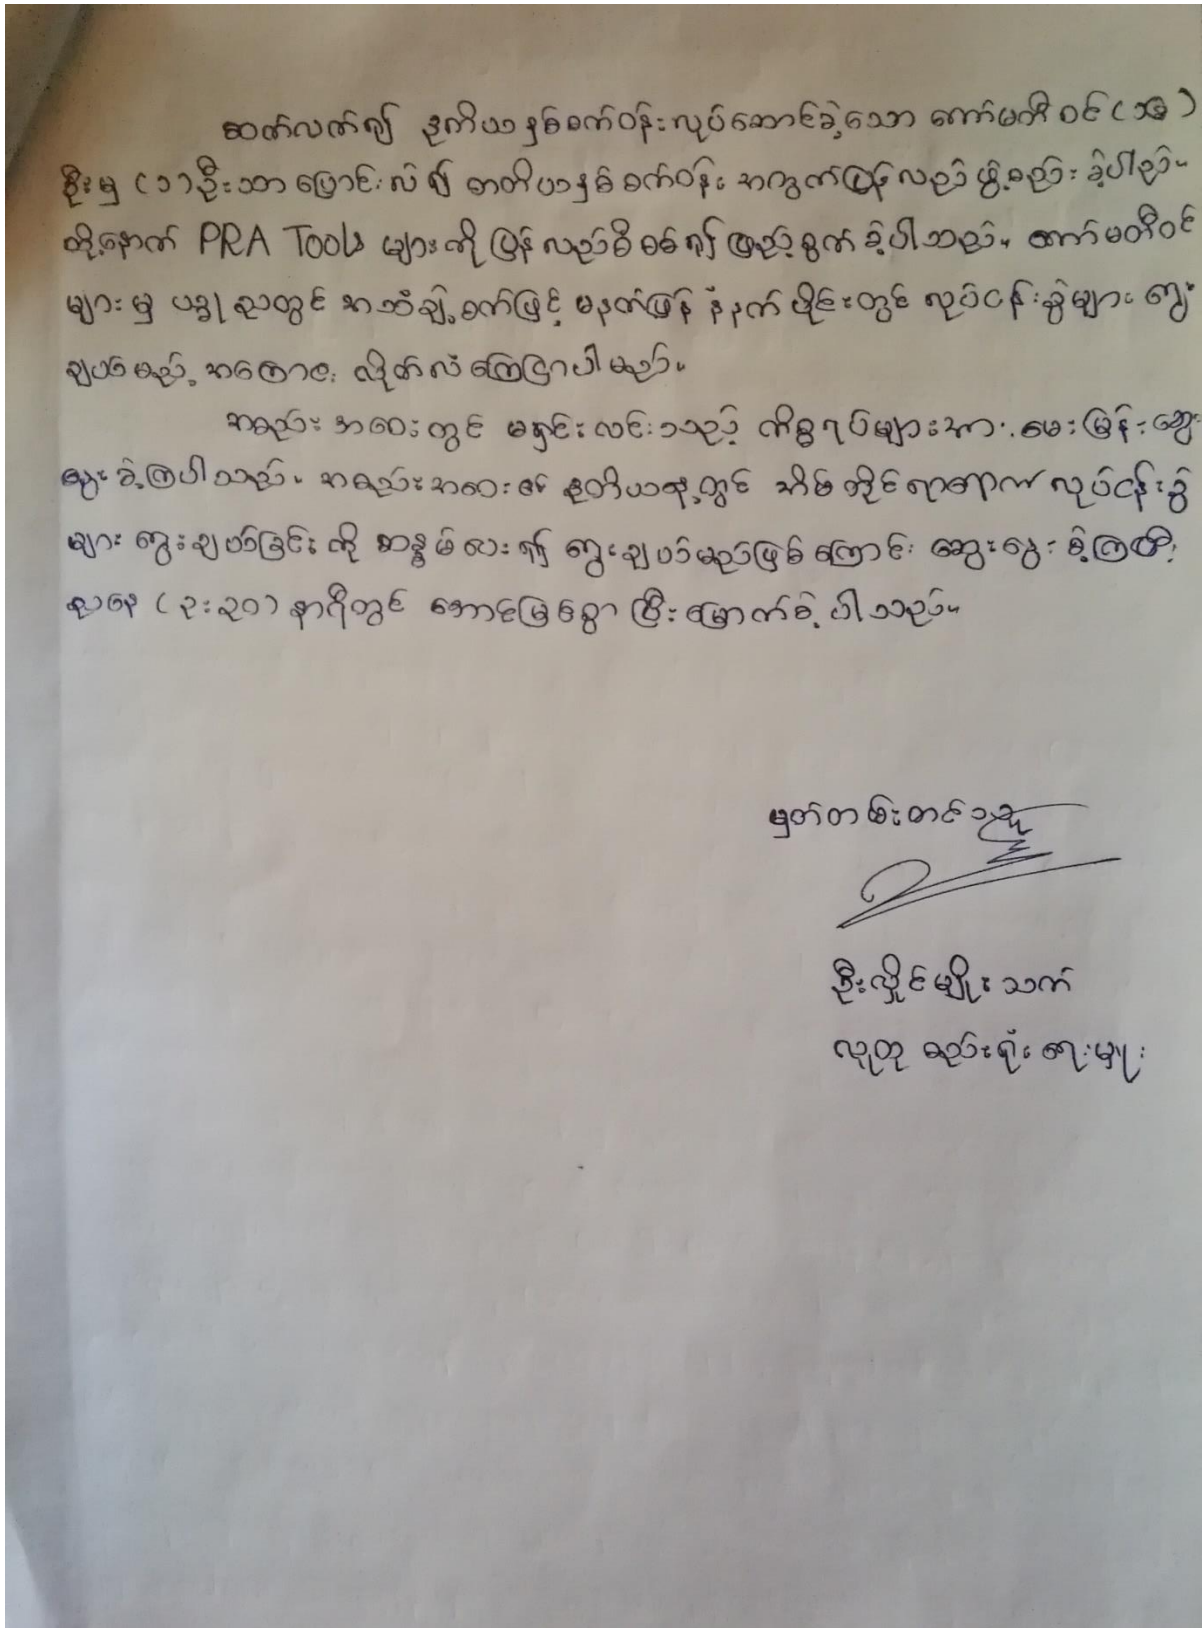 ဆက်လက်၍ ဒုတိယနှစ်စက်ဝန်းလုပ်ဆောင်ခဲ့သော ကော်မတီဝင်
ဦးမှ (၁)ဦးသာပြောင်းလဲ၍ တတိယနှစ်စက်ဝန်း အတွက်ပြန်လည်ဖွဲ့စည်းခဲ့ပါသည်။
ထို့နောက် PRA Tools များကို ပြန်လည်စိစစ်၍ဖြည့်စွက်ခဲ့ပါသည်။ ကော်မတီဝင်
များမှ ယခုညတွင် အသံချဲ့စက်ဖြင့် မနက်ဖြန် နံနက်ပိုင်းတွင် လုပ်ငန်းခွဲများ ရွေး
ချယ်မည့် အကြောင်း လိုက်လံကြေငြာပါမည်။
အစည်းအဝေးတွင် မရှင်းလင်းသည့် ကိစ္စရပ်များအား မေးမြန်းဆွေး
နွေးခဲ့ကြပါသည်။ အစည်းအဝေး၏ ဒုတိယနေ့တွင် လုပ်ငန်းခွဲ
များ ရွေးချယ်ခြင်းကို ရွေးချယ်မည်ဖြစ်ကြောင်း ဆွေးနွေးခဲ့ကြပြီး
ညနေ (၃:၃၀) နာရီတွင် အောင်မြင်စွာ ပြီးမြောက်ခဲ့ပါသည်။
မှတ်တမ်းတင်သူ
ဦးလှိုင်မျိုးသက်
လူထု စည်းရုံးရေးမှူး